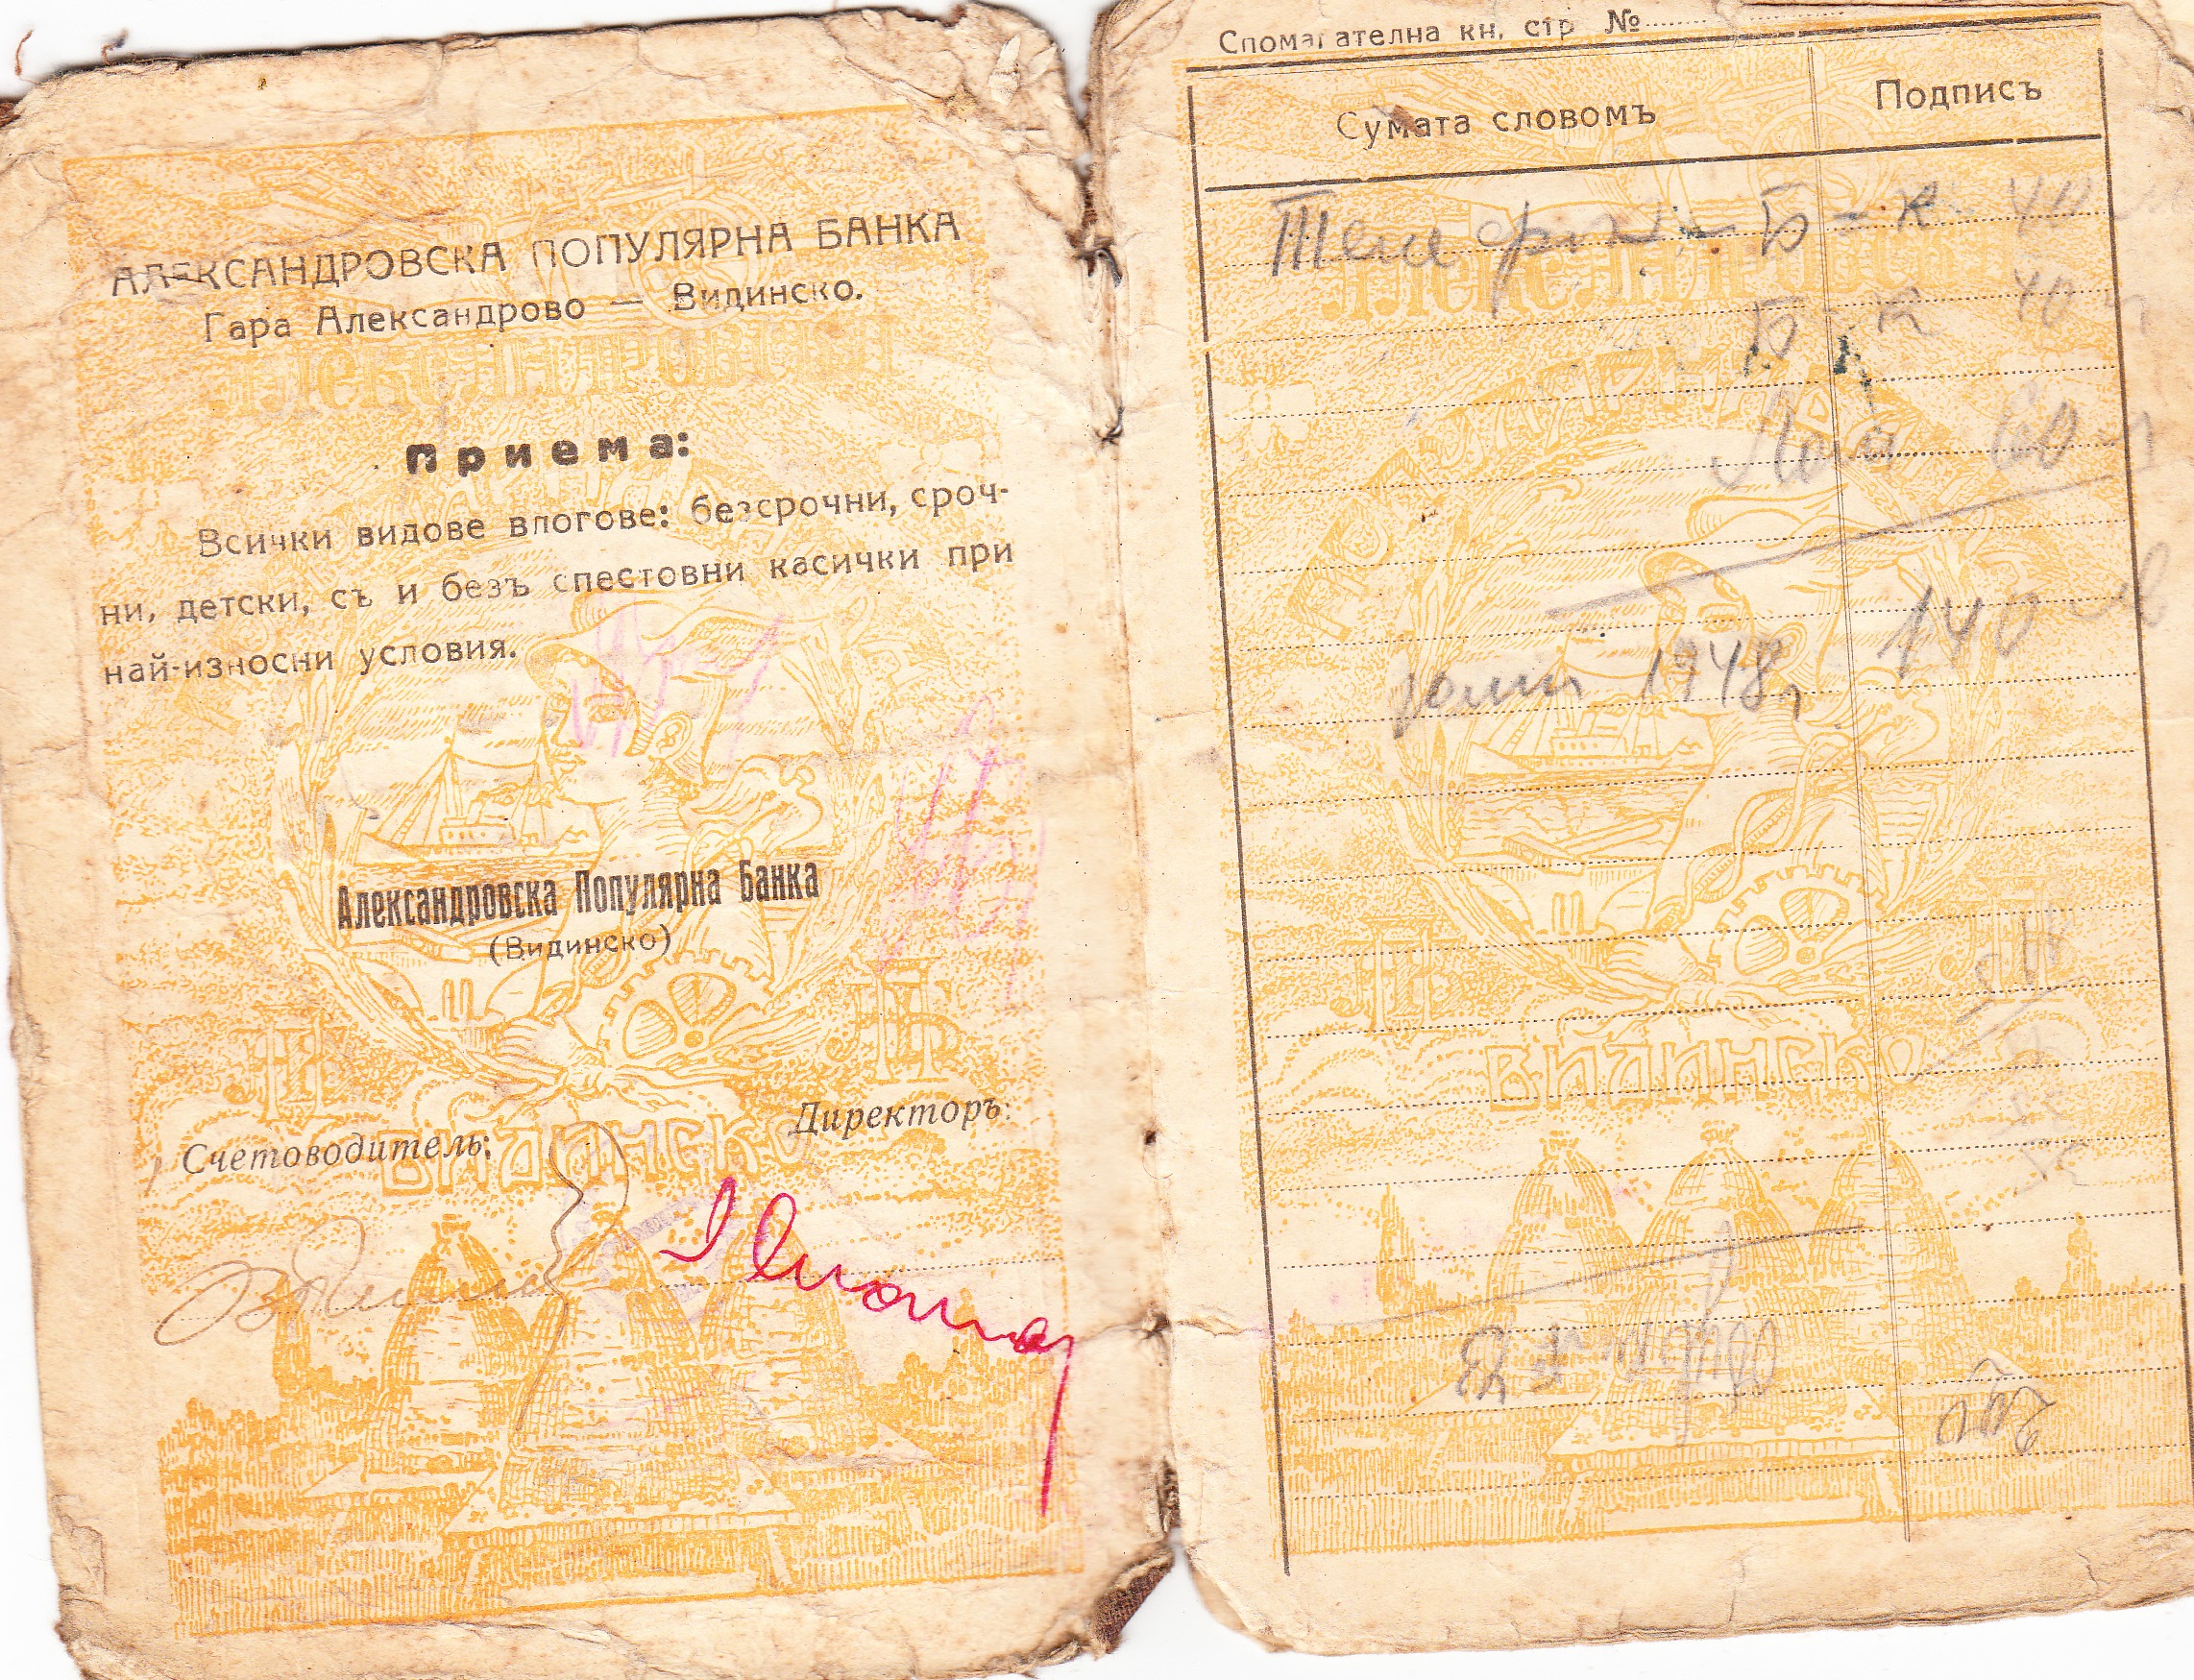 АЛЕКСАНДРОВСКА ПОПУЛЯРНА БАНКА
Гара Александрово — Видинско.
Приема:
Всички видове влогове: безсрочни, сроч-
ни, детски, съ и безъ спестовни касички при
най-износни условия.
Александровска Популярна Банка
(Видинско)
Счетоводитель:
Директоръ:
ВИДИНСКО
Спомагателна кн. стр №
Сумата словомъ
Подписъ
Б-к 40
Б-к 40
60
140 лв
юлий 1948г
ВИДИНСКО
200